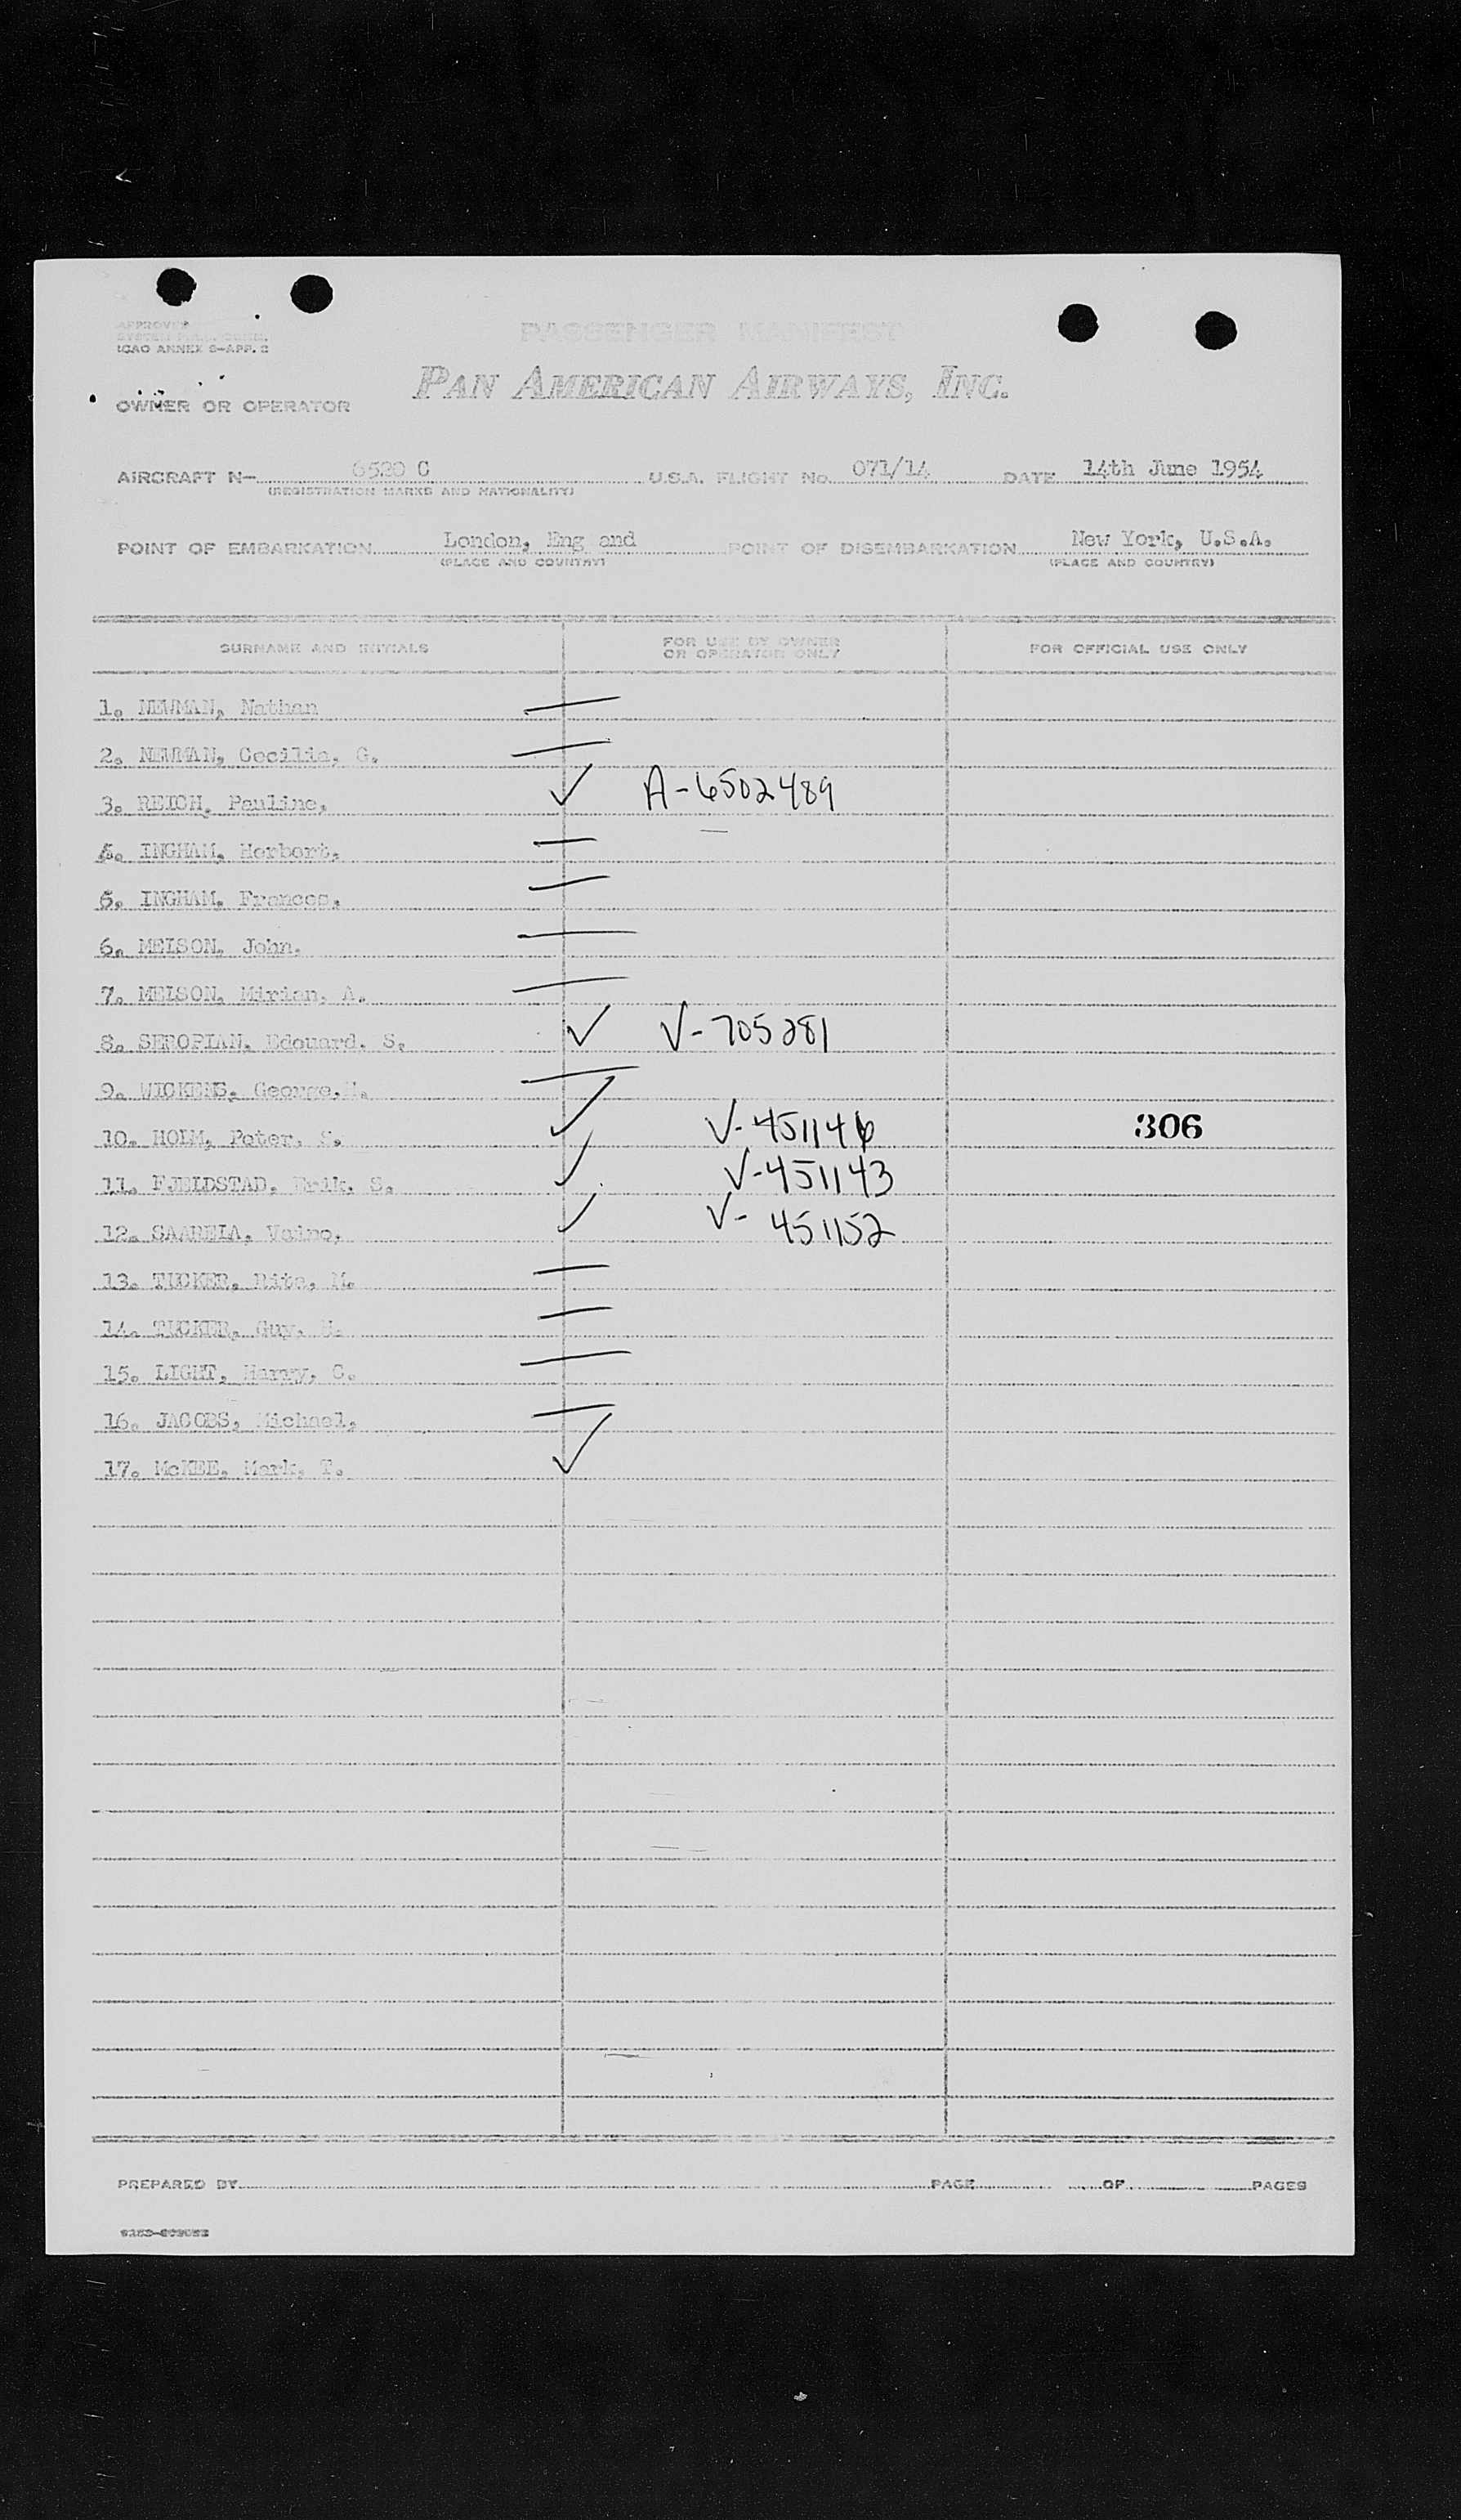 APPROVED
ICAO ANNEX 9-APP. 2
PASSENGER MANIFEST
PAN AMERICAN AIRWAYS, INC.
OWNER OR OPERATOR
AIRCRAFT N- 6520 C U.S.A. FLIGHT No. 071/14 DATE 14th June 1954
(REGISTRATION MARKS AND NATIONALITY)
POINT OF EMBARKATION London, Eng and POINT OF DISEMBARKATION New York, U.S.A.
(PLACE AND COUNTRY) (PLACE AND COUNTRY)
SURNAME AND INITIALS FOR USE BY OWNER OR OPERATOR ONLY FOR OFFICIAL USE ONLY
1. NEWMAN, Nathan —
2. NEWMAN, Cecilia, G. —
3. REICH, Pauline, ✓ A-6502489
4. INGHAM, Herbert, —
5. INGHAM, Frances, —
6. MELSON, John. —
7. MELSON, Mirian, A. —
8. SEROPIAN, Edouard. S. ✓ V-705281
9. WICKENS, George. —
10. HOLM, Peter. S. ✓ V-451146 306
11. FJELDSTAD, Erik. S. ✓ V-451143
12. SAARELA, Vaino, ✓ V-451152
13. TUCKER, Rita, M. —
14. TUCKER, Guy, —
15. LIGHT, Harry, C. —
16. JACOBS, Michael, —
17. McKEE, Mark, T. ✓
PREPARED BY PAGE OF PAGES